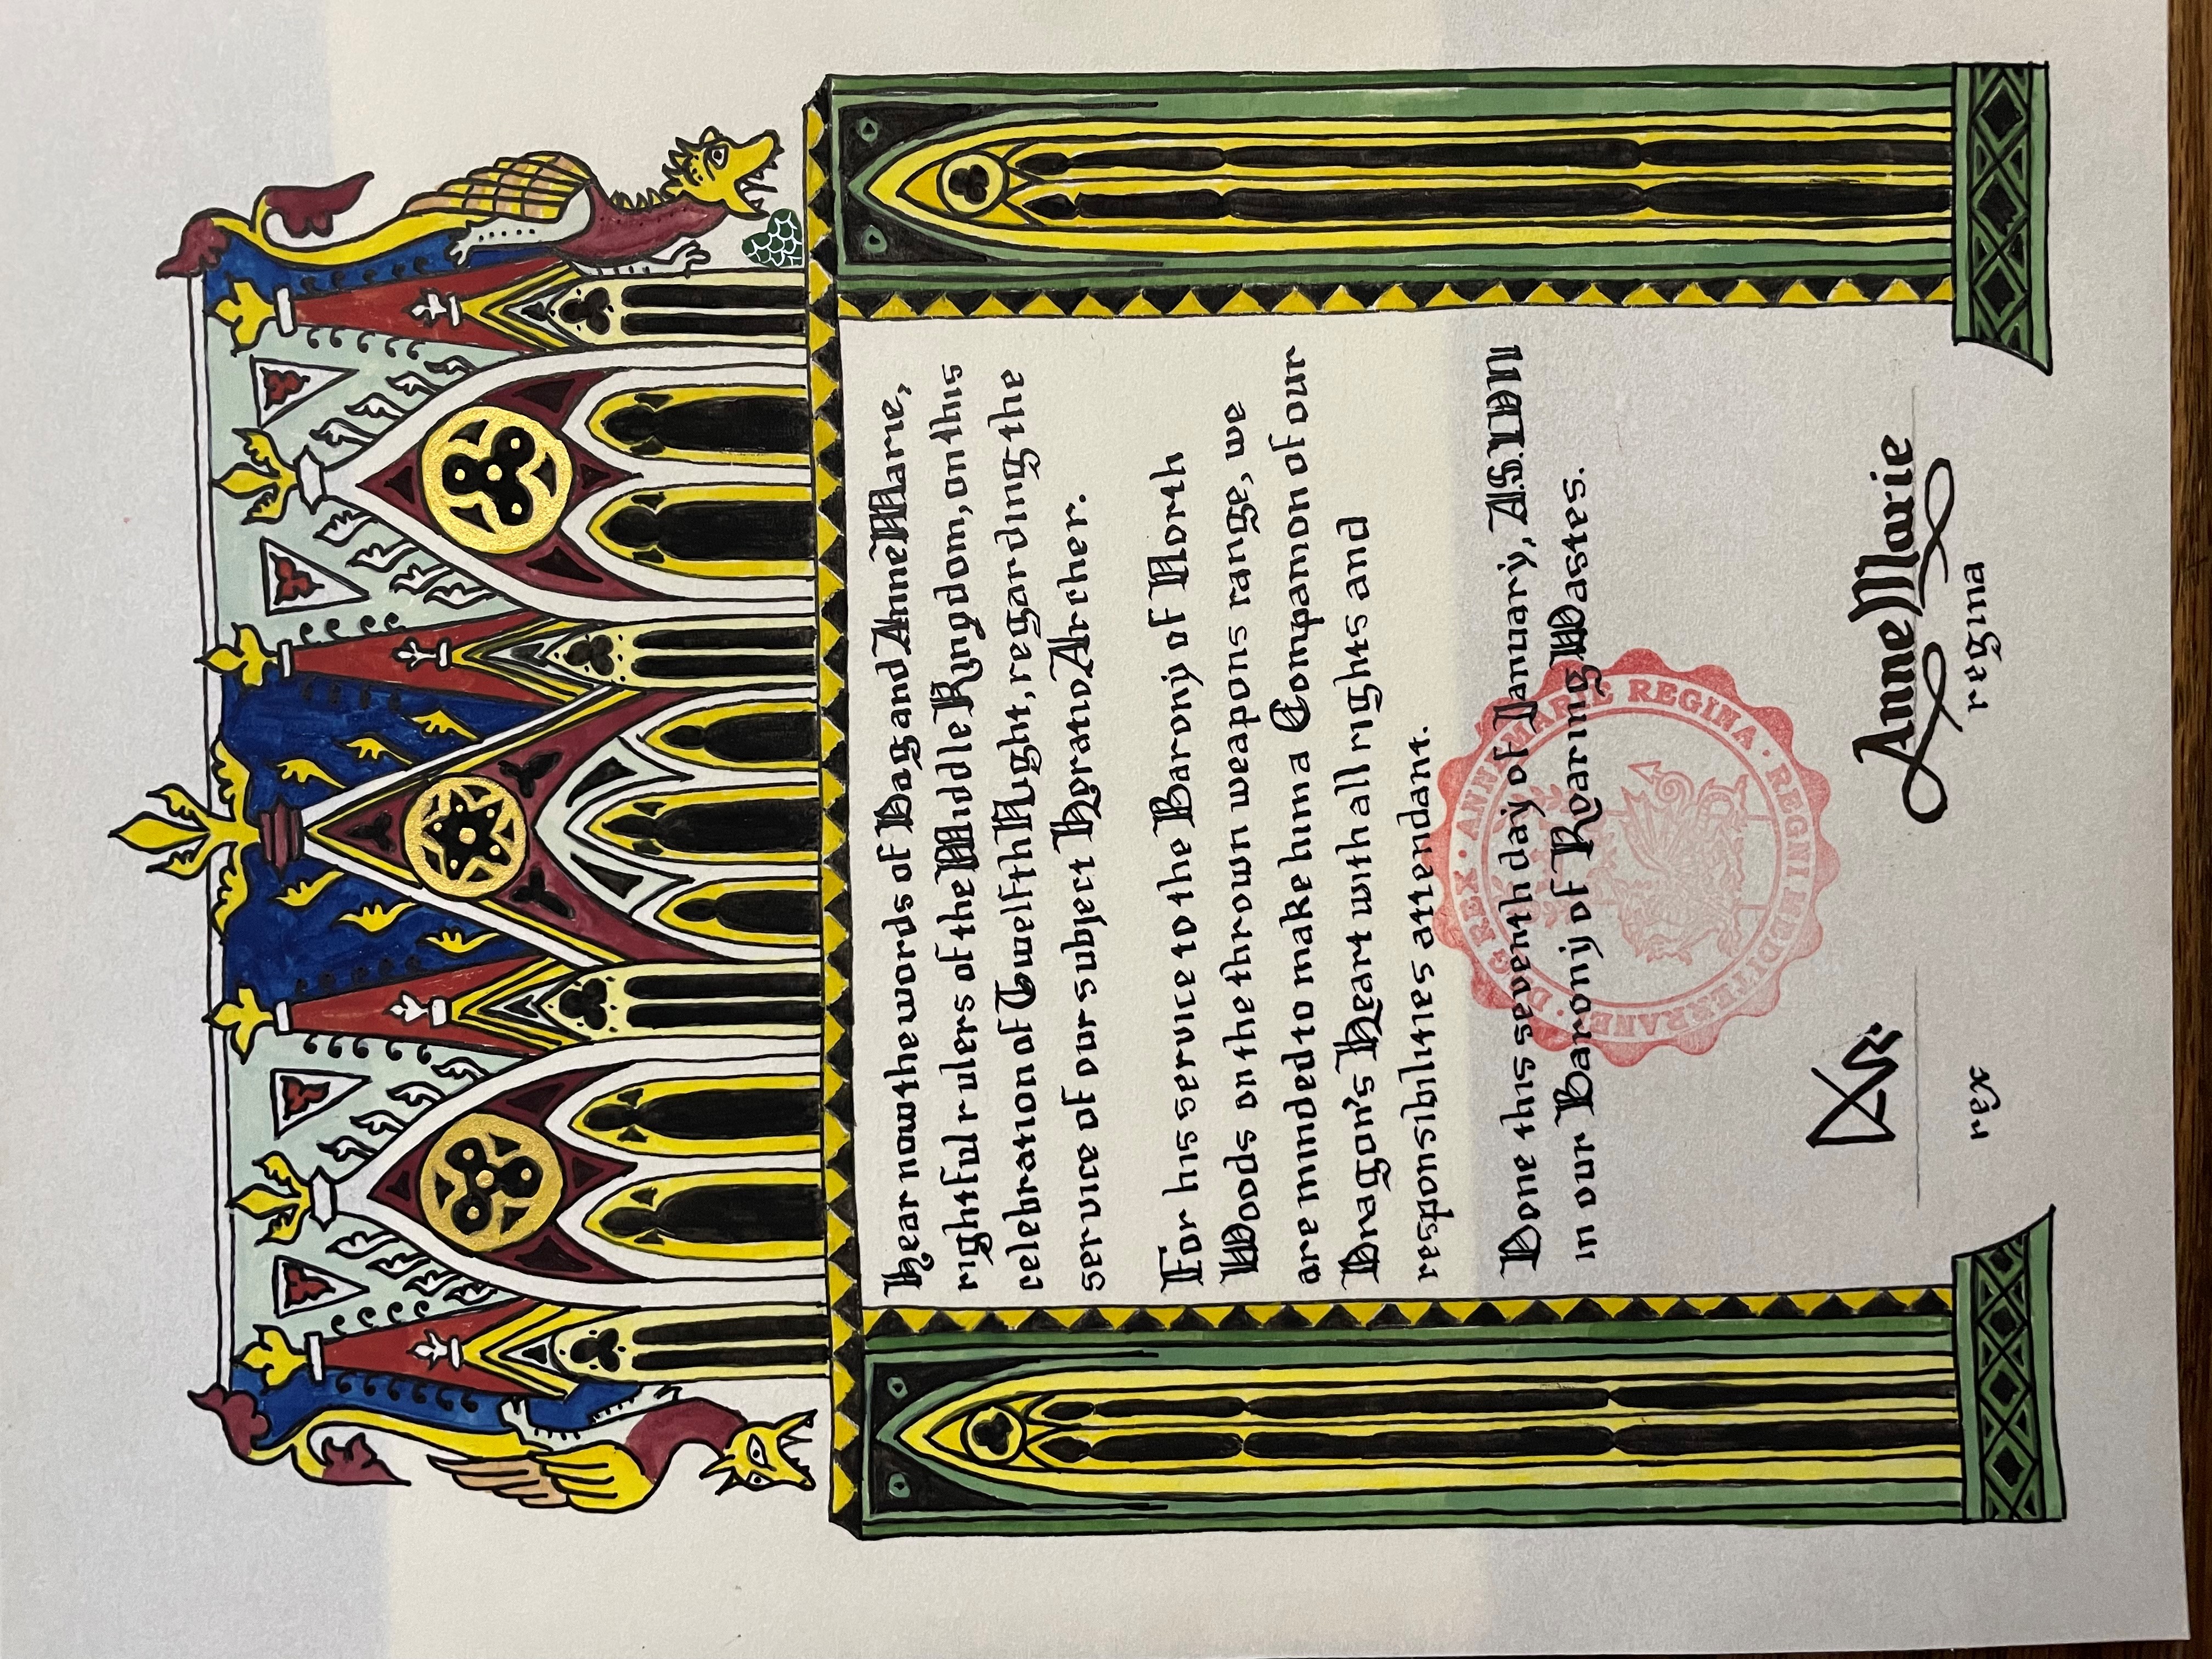 Hear now the words of Dag and AnneMarie,
rightful rulers of the Middle Kingdom, on this
celebration of Twelfth Night, regarding the
service of our subject Horatio Archer.
For his service to the Barony of North
Woods on the thrown weapons range, we
are minded to make him a Companion of our
Dragon's Heart with all rights and
responsibilities attendant.
Done this seventh day of January, A.S. LVII
in our Barony of Roaring Wastes.
DAG REX · ANNE MARIE REGINA · REGNI MEDITERRANEI ·
AnneMarie
rex regina